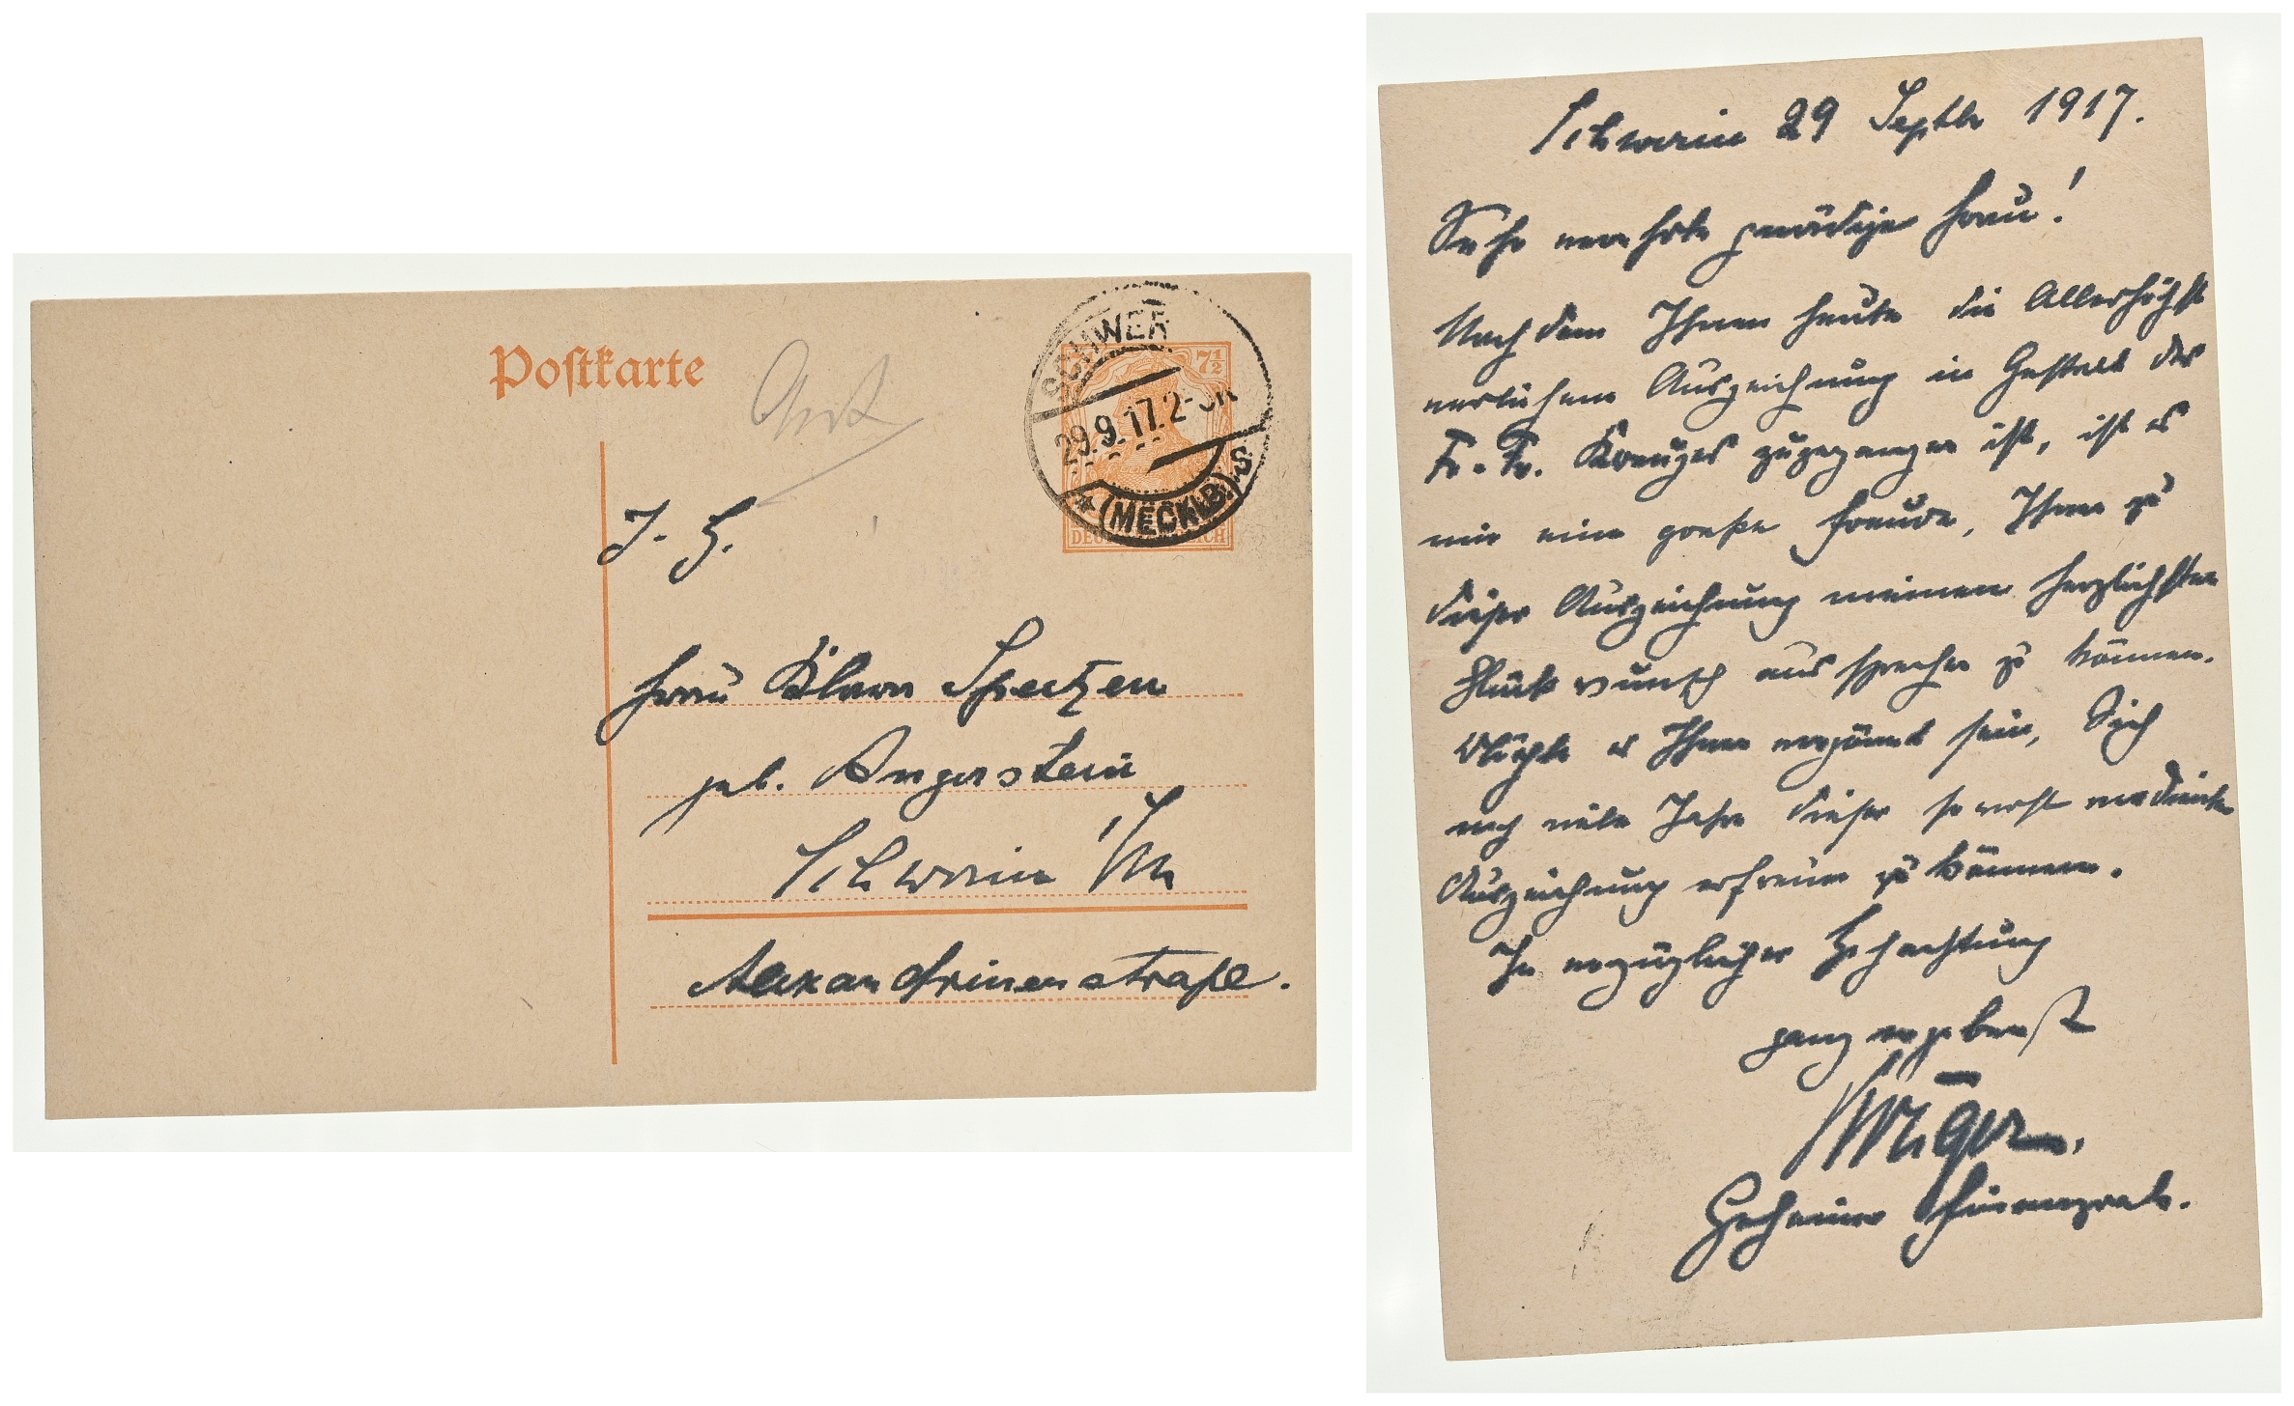 Postkarte
SCHWERIN
29.9.17.2-3N
* (MECKLB.) S
7½
DEUTSCHES REICH
J. H.
Frau Klara Speetzen
geb. Angerstein
Schwerin i/M
Alexandrinenstraße.
Schwerin 29 Septbr 1917.
Sehr verehrte gnädige Frau!
Nachdem Ihnen heute die Allerhöchst
verliehene Auszeichnung in Gestalt des
Fr. Fr. Kreuzes zugegangen ist, ist es
mir eine große Freude, Ihnen zu
dieser Auszeichnung meinen herzlichsten
Glückwunsch aussprechen zu können.
Möge es Ihnen vergönnt sein, Sich
noch viele Jahre dieser so wohl verdienten
Auszeichnung erfreuen zu können.
In vorzüglicher Hochachtung
ganz ergebenst
Krüger.
Geheimer Finanzrat.